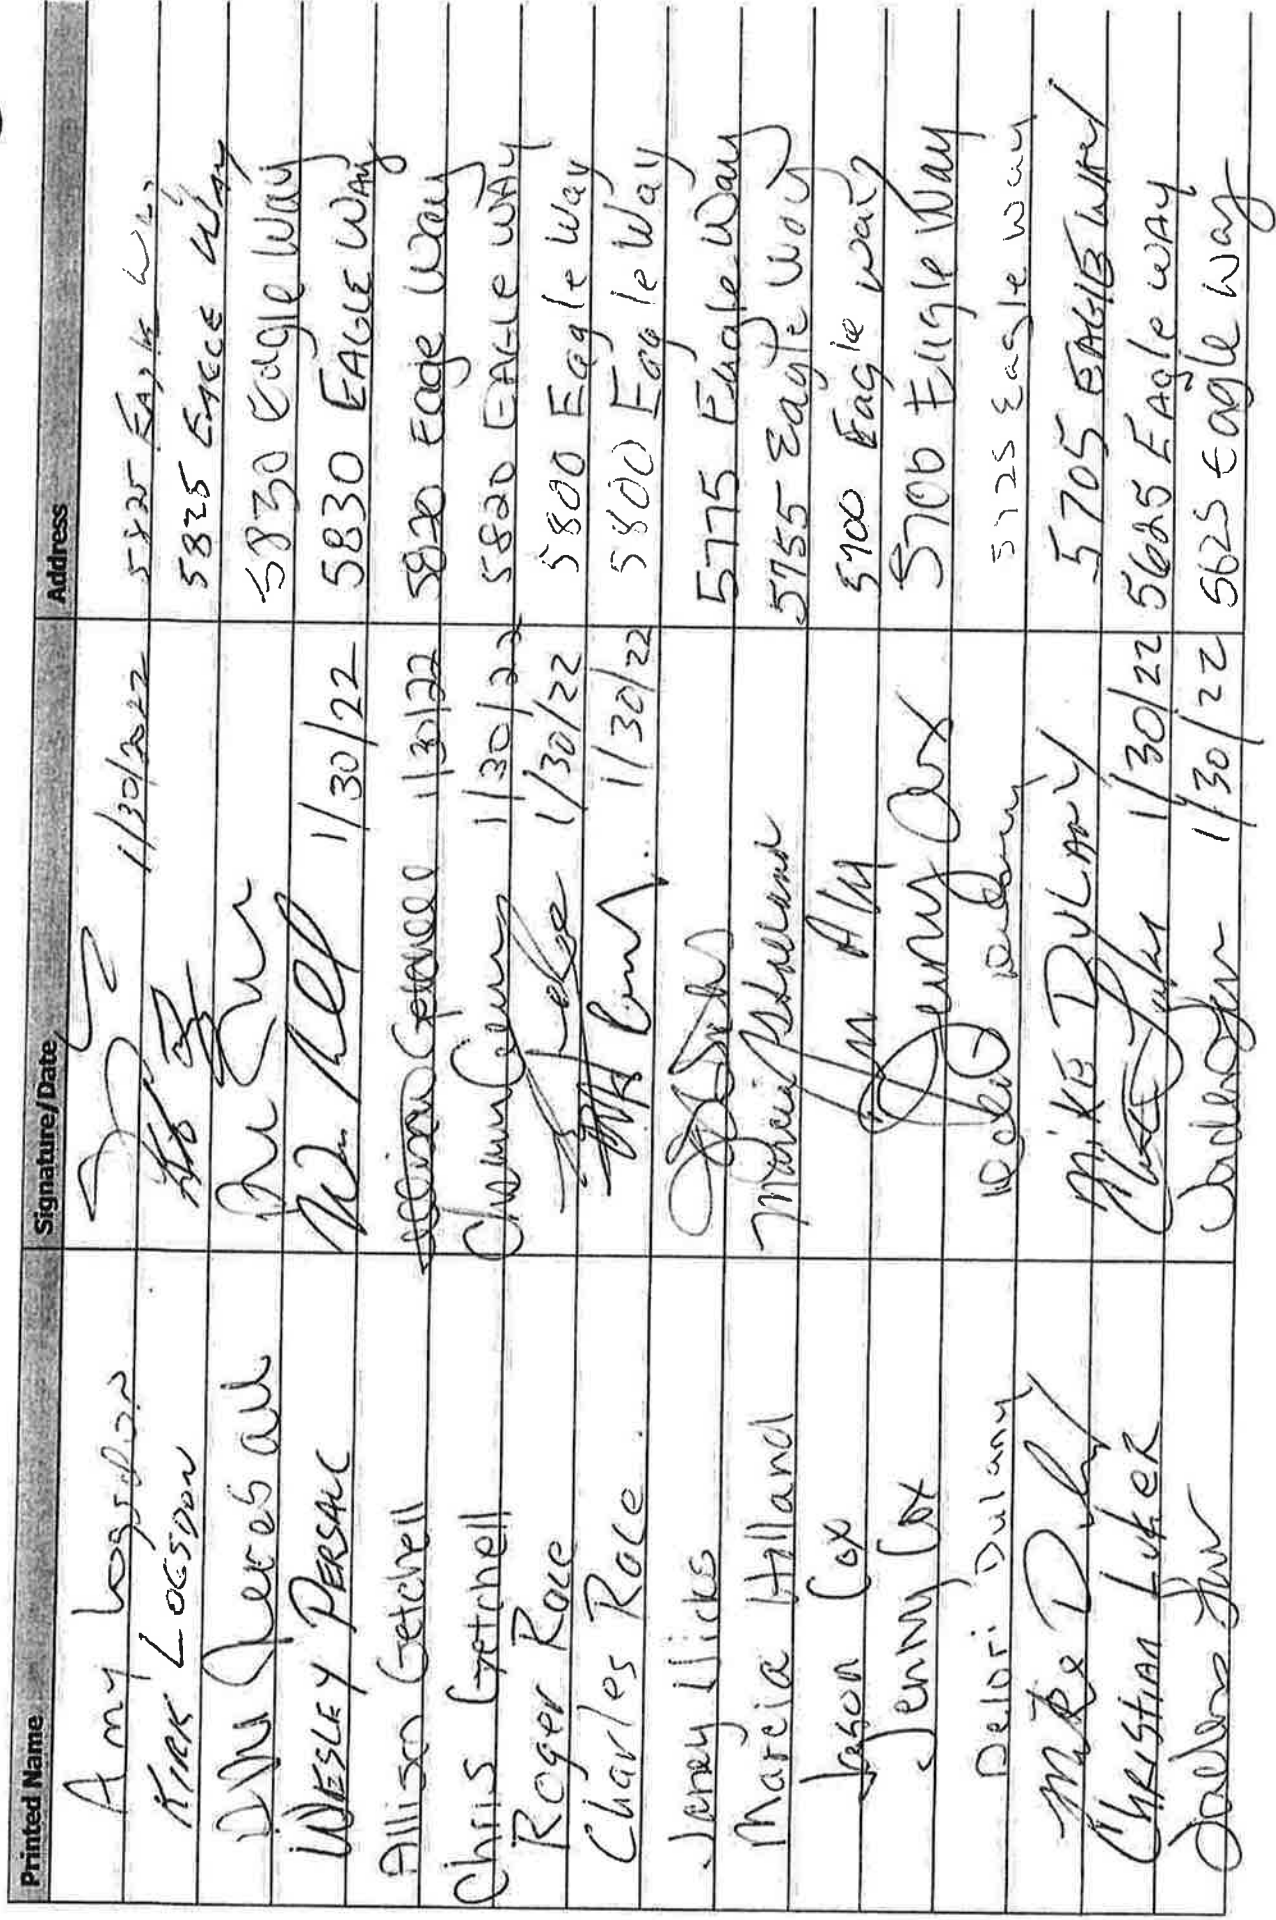 Printed Name Signature/Date Address
Amy Logsdon 1/30/2022 5825 Eagle
KIRK LOGSDON 5825 EAGLE WAY
5830 Eagle Way
WESLEY PERSAC 1/30/22 5830 EAGLE WAY
Allison Getchell Allison Getchell 1/30/22 5820 Eagle Way
Chris Getchell 1/30/22 5820 EAGLE WAY
Roger Race 1/30/22 5800 Eagle Way
Charles Race 1/30/22 5800 Eagle Way
Janey Hicks 5775 Eagle Way
Marcia Holland Marcia Holland 5755 Eagle Way
Jason Cox 5700 Eagle Way
Jenny Cox Jenny Cox 5700 Eagle Way
Delori Dulany Delori Dulany 5725 Eagle Way
Mike MIKE DULANY 5705 EAGLE WAY
CHRISTIAN LUKER 1/30/22 5625 EAgle WAY
1/30/22 5625 Eagle Way